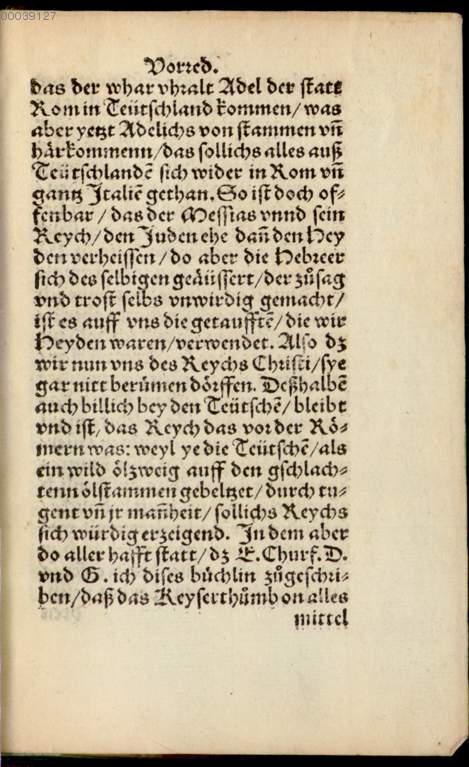 00039127
Vorred.
das der whar vhralt Adel der statt
Rom in Teütschland kommen/ was
aber yetzt Adelichs von stammen vñ
härkommenn/das sollichs alles auß
Teütschlandẽ sich wider in Rom vñ
gantz Italiẽ gethan. So ist doch of⸗
fenbar / das der Messias vnnd sein
Reych/den Juden ehe dañ den Hey
den verheissen/ do aber die Hebreer
sich des selbigen geäüssert/der zůsag
vnd trost selbs vnwirdig gemacht/
ist es auff vns die getaufftẽ/ die wir
Heyden waren/verwendet. Also dz
wir nun vns des Reychs Christi/sye
gar nitt berümen dörffen. Deßhalbẽ
auch billich bey den Teütschẽ/ bleibt
vnd ist, das Reych das vor der Rö⸗
mern was: weyl ye die Teütschẽ/als
ein wild ölzweig auff den gschlach⸗
tenn ölstammen gebeltzet/ durch tu⸗
gent vñ jr mañheit/ sollichs Reychs
sich würdig erzeigend. In dem aber
do aller hafft statt/ dz E. Churf. D.
vnd G. ich dises büchlin zůgeschri⸗
ben/daß das Keyserthůmb on alles
mittel